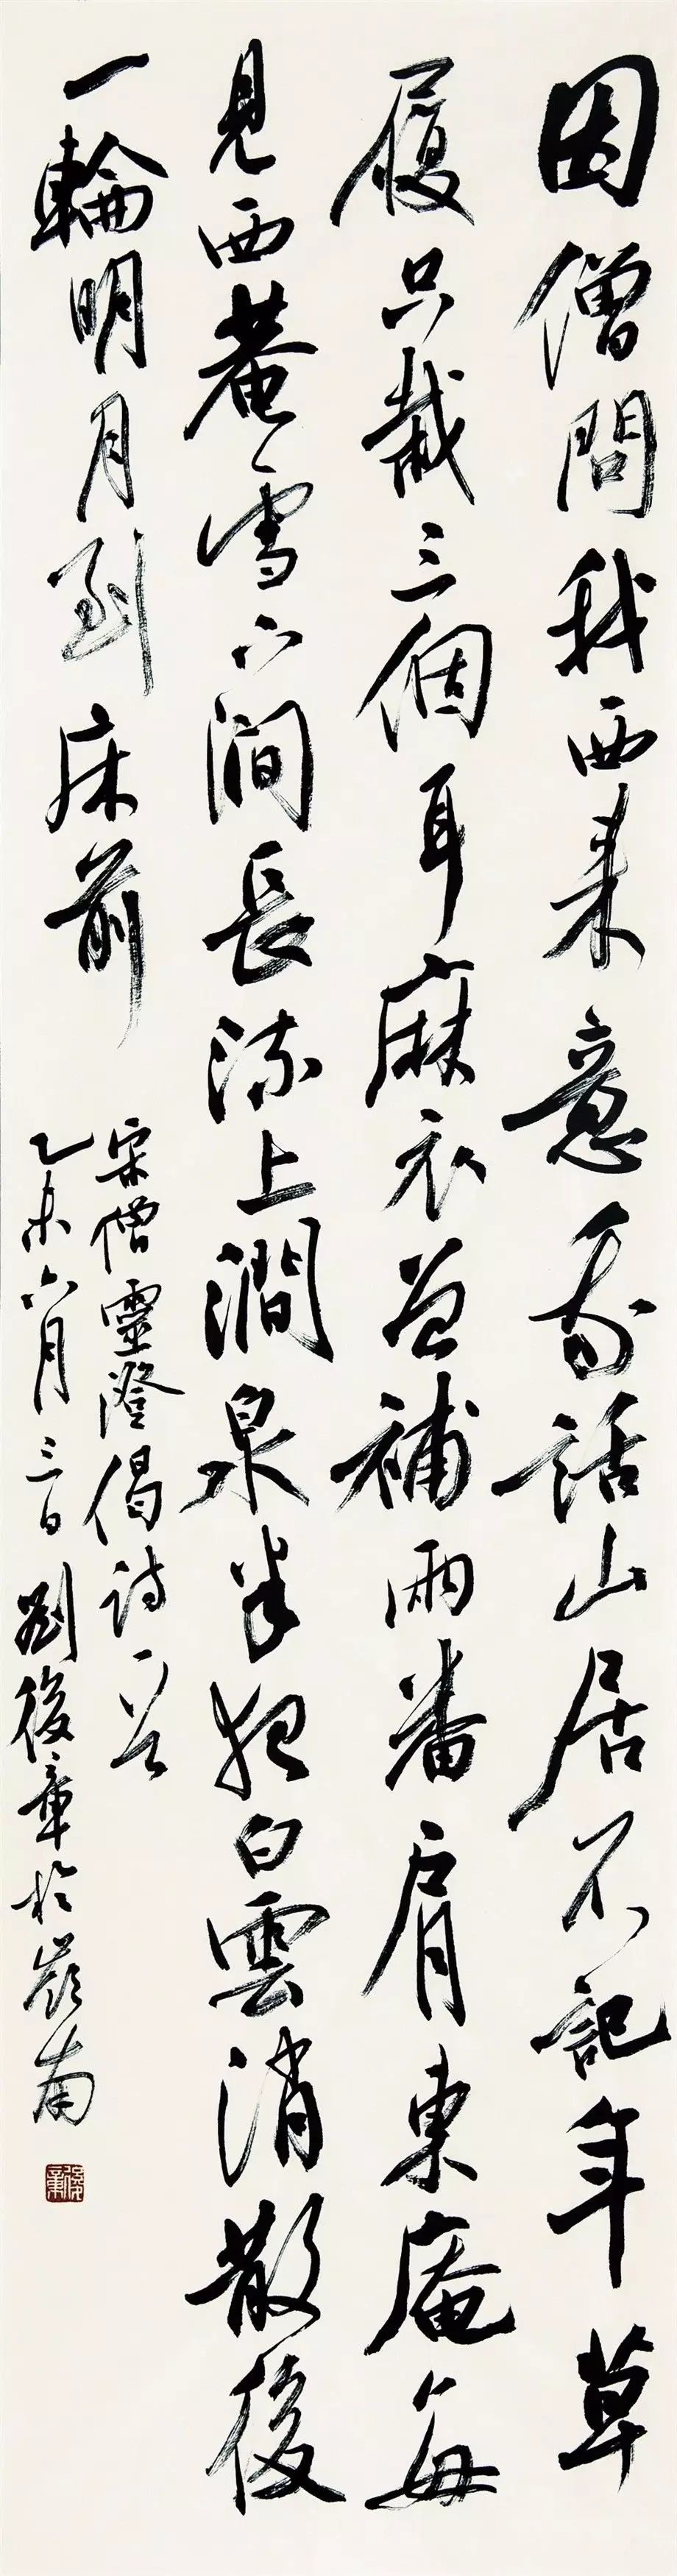 因僧問我西来意我話山居不記年草
履只栽三個耳麻衣曾補兩番肩東庵每
見西菴雪下澗長流上澗泉半夜白雲消散後
一輪明月到床前
宋僧靈澄偈詩一首
乙未六月三日劉後章於嶺南
後章